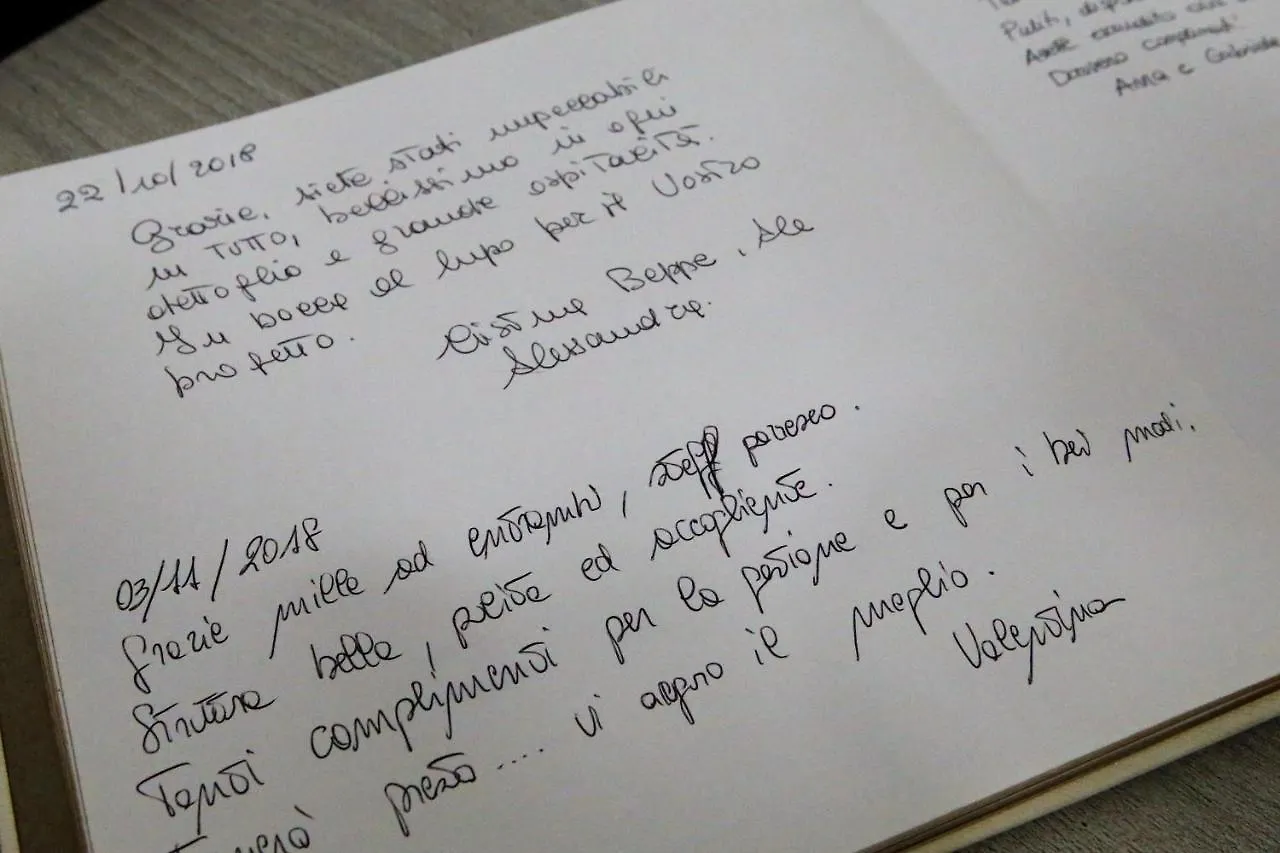 22/10/2018
Grazie, siete stati impeccabili
in tutto, bellissimo in ogni
dettaglio e grande ospitalità.
In bocca al lupo per il Vostro
progetto.
Cristina Beppe, Ale
Alessandra.
03/11/2018
Grazie mille ad entrambi, staff pazzesco.
Struttura bella, pulita ed accogliente.
Tanti complimenti per la gestione e per i bei modi.
presto... vi auguro il meglio.
Valentina
Puliti,
Davvero complimenti
Anna e Gabriele